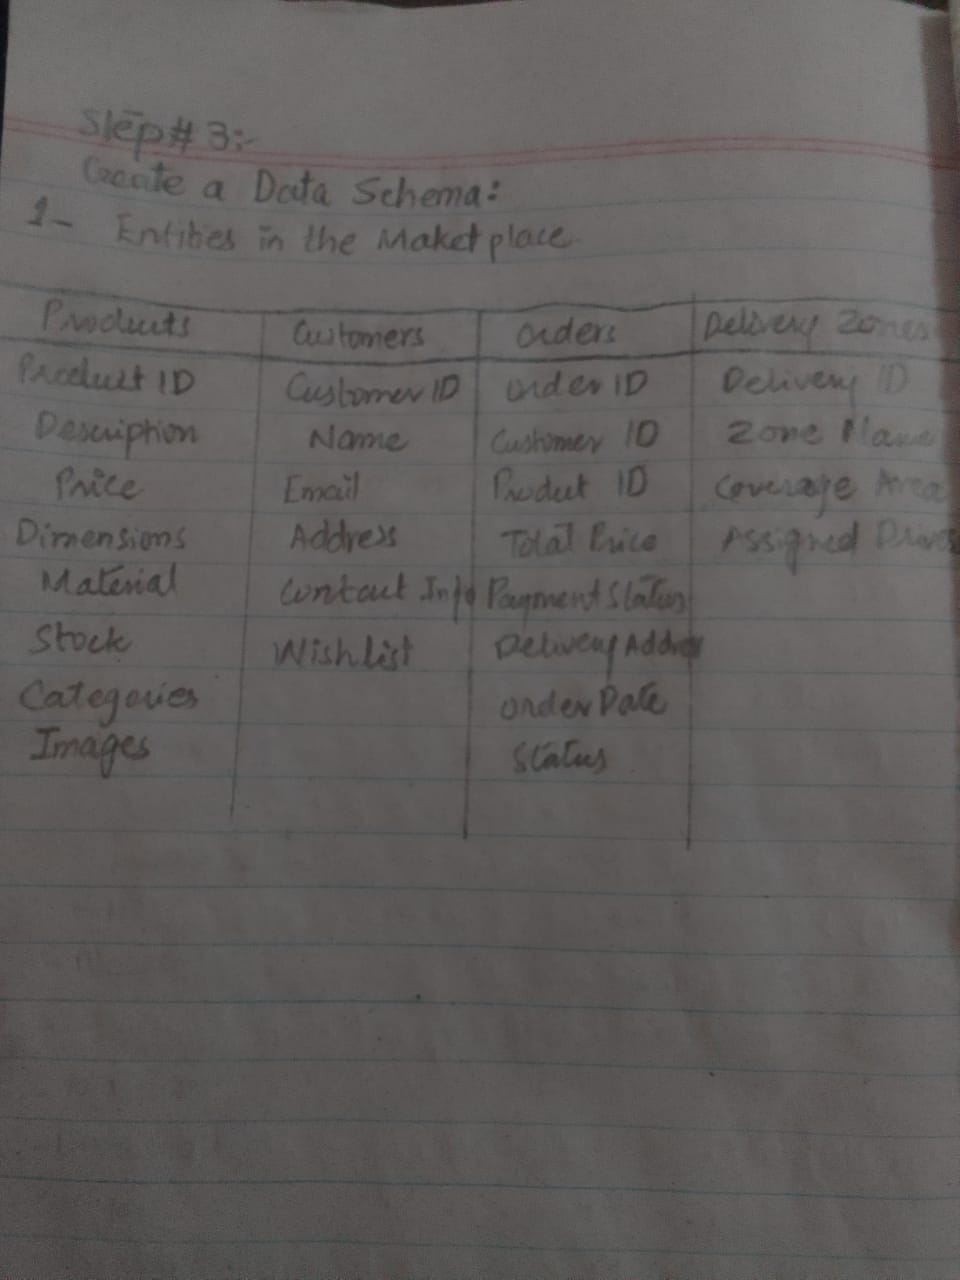 Step # 3:-
Create a Data Schema:
1- Entities in the Maket place
Products Customers Orders Delivery Zones
Product ID Customer ID Order ID Delivery ID
Description Name Customer ID Zone Name
Price Email Product ID Coverage Area
Dimensions Address Total Price Assigned
Material Contact Info Payment Status
Stock Wishlist Delivery Address
Categories Order Date
Images Status